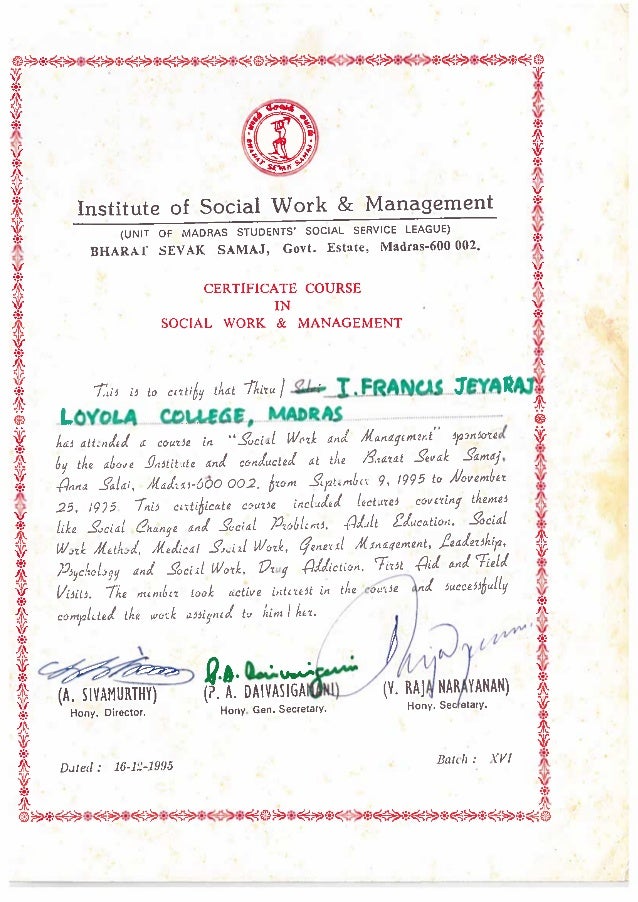 பாரத் சேவக் சமாஜ்
BHARAT SEVAK SAMAJ
Institute of Social Work & Management
(UNIT OF MADRAS STUDENTS' SOCIAL SERVICE LEAGUE)
BHARAT SEVAK SAMAJ, Govt. Estate, Madras-600 002.
CERTIFICATE COURSE
IN
SOCIAL WORK & MANAGEMENT
This is to certify that Thiru / Selvi I. FRANCIS JEYARAJ
LOYOLA COLLEGE, MADRAS
has attended a course in "Social Work and Management" sponsored
by the above Institute and conducted at the Bharat Sevak Samaj,
Anna Salai, Madras-600 002, from September 9, 1995 to November
25, 1995. This certificate course included lectures covering themes
like Social Change and Social Problems, Adult Education, Social
Work Method, Medical Social Work, General Management, Leadership,
Psychology and Social Work, Drug Addiction, First Aid and Field
Visits. The member took active interest in the course and successfully
completed the work assigned to him / her.
P. A. Daivasigamani
(A. SIVAMURTHY) (P. A. DAIVASIGAMANI) (V. RAJA NARAYANAN)
Hony. Director. Hony. Gen. Secretary. Hony. Secretary.
Dated : 16-12-1995 Batch : XVI